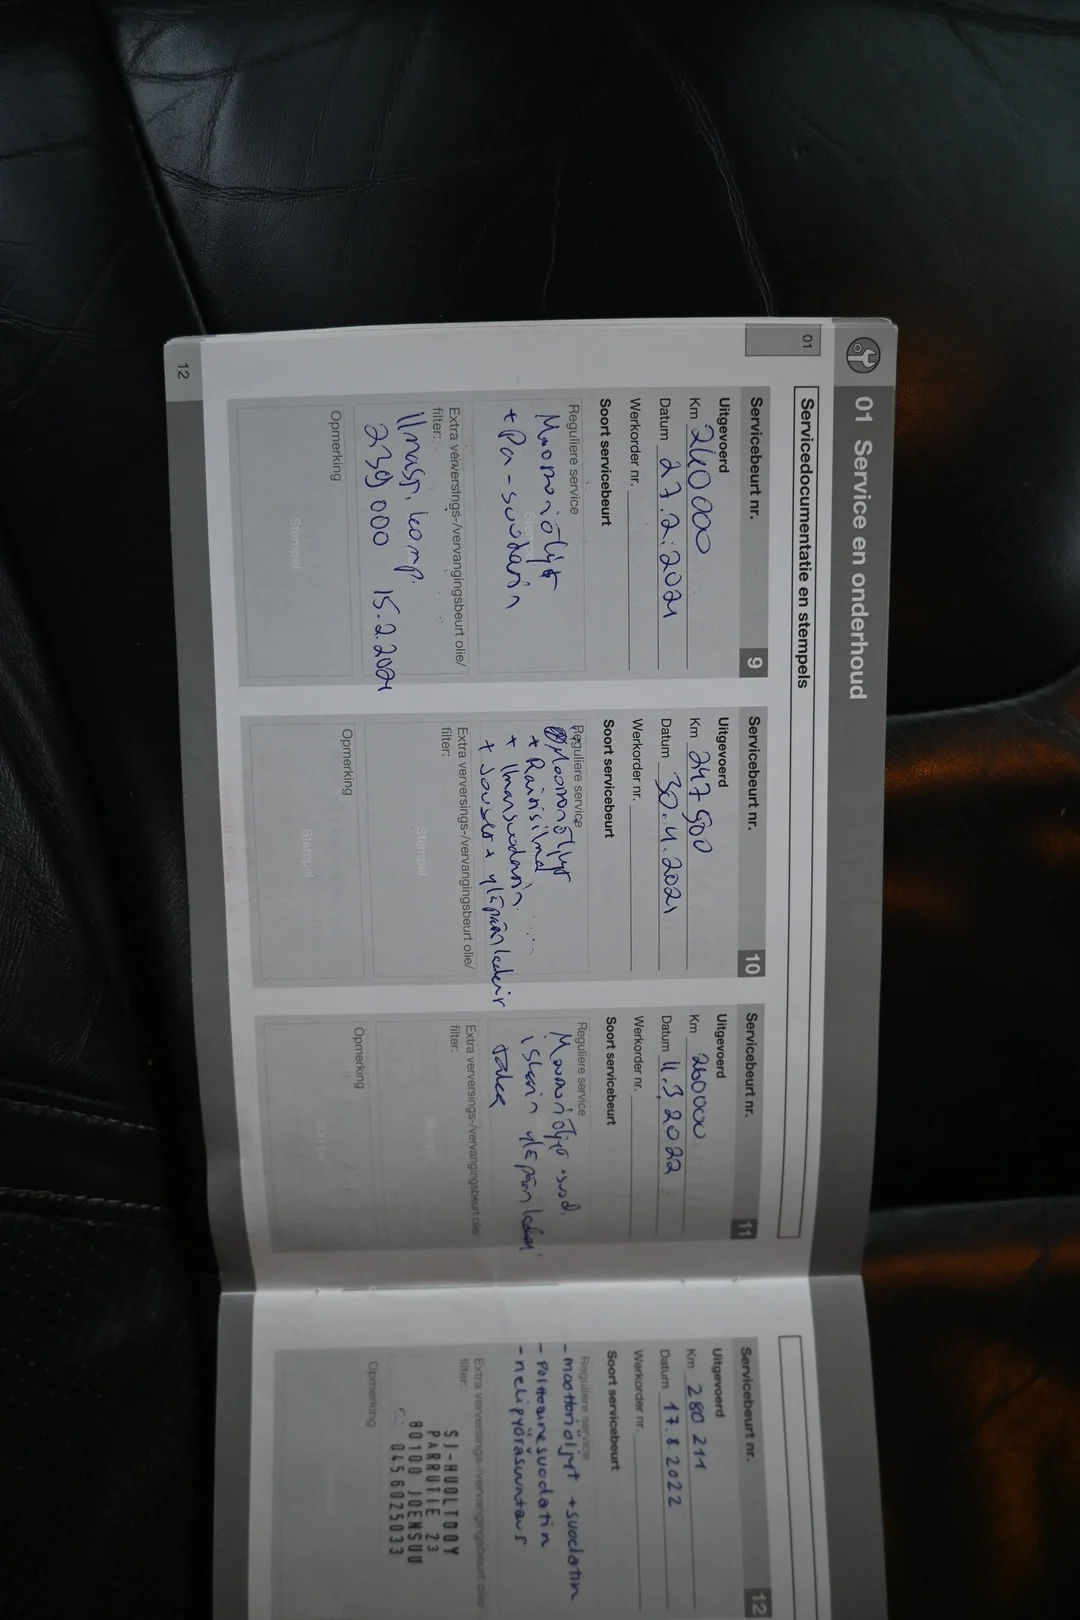 01 Service en onderhoud
01
Servicedocumentatie en stempels
Servicebeurt nr. 9
Uitgevoerd
Km 240000
Datum 27.2.2021
Werkorder nr.
Soort servicebeurt
Reguliere service
Stempel
+ Pa-suodatin
Extra verversings-/vervangingsbeurt olie/
filter:
Ilmast. komp.
239000 15.2.2021
Opmerking
Stempel
Servicebeurt nr. 10
Uitgevoerd
Km 247500
Datum 30.4.2021
Werkorder nr.
Soort servicebeurt
Reguliere service
+ Raitisilma
+ Ilmansuodatin
Extra verversings-/vervangingsbeurt olie/
filter:
Stempel
Opmerking
Stempel
Servicebeurt nr. 11
Uitgevoerd
Km 260000
Datum 11.3.2022
Werkorder nr.
Soort servicebeurt
Reguliere service
+suod.
takaa
Extra verversings-/vervangingsbeurt olie/
filter:
Stempel
Opmerking
Stempel
12
Servicebeurt nr. 12
Uitgevoerd
Km 280 211
Datum 17.8.2022
Werkorder nr.
Soort servicebeurt
Reguliere service
- moottoriöljyt + suodatin
- Polttoainesuodatin
- nelipyöräsuuntaus
Extra verversings-/vervangingsbeurt olie/
filter:
SJ-HUOLTO OY
PARRUTIE 23
80100 JOENSUU
0456025033
Opmerking